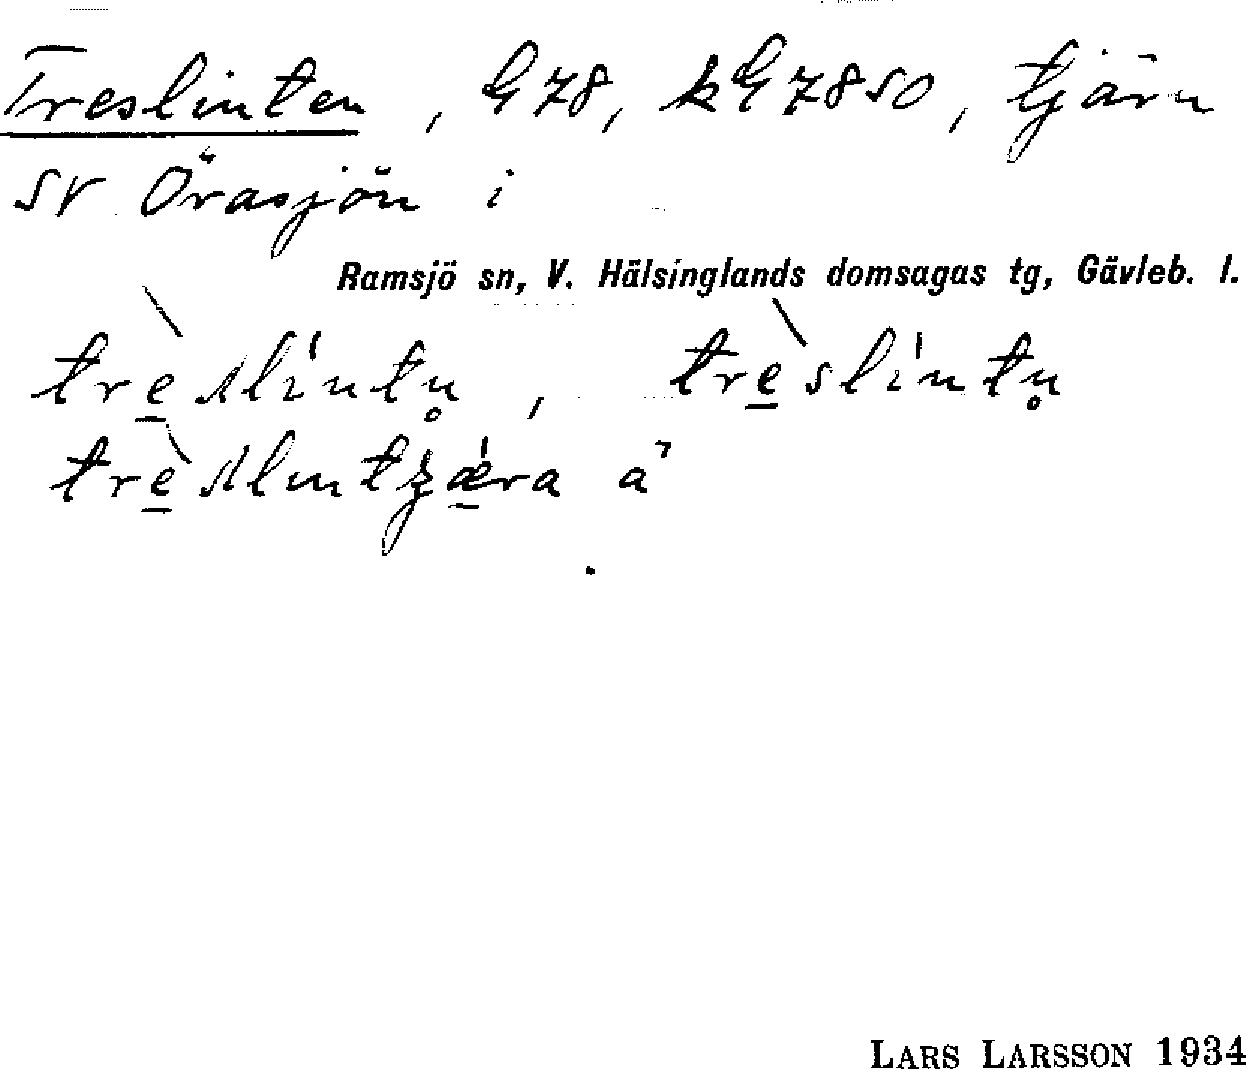 Treslinten, G78, kG7850, tjärn
SV Örasjön i
Ramsjö sn, V. Hälsinglands domsagas tg, Gävleb. l.
trè̱slíntn̥, trè̱slíntn̥
LARS LARSSON 1934